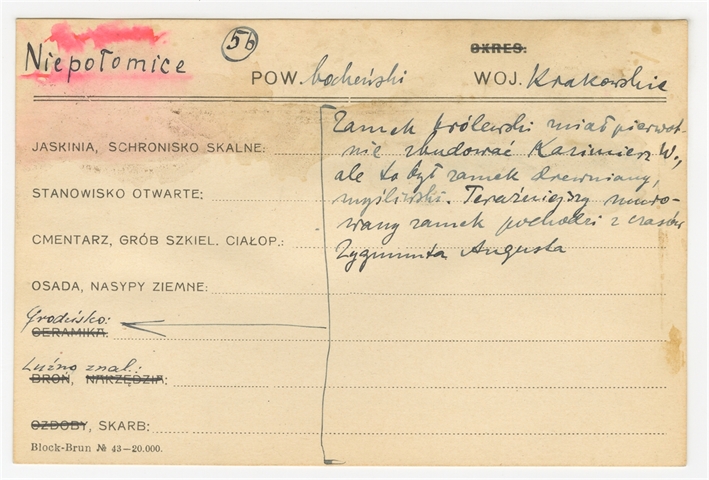 Niepołomice
5b
OKRES:
POW. bocheński WOJ. Krakowskie
JASKINIA, SCHRONISKO SKALNE:
STANOWISKO OTWARTE:
CMENTARZ, GRÓB SZKIEL. CIAŁOP.:
OSADA, NASYPY ZIEMNE:
Grodzisko:
CERAMIKA:
Luźno znal.:
BROŃ, NARZĘDZIA:
OZDOBY, SKARB:
Block-Brun № 43-20.000.
Zamek królewski miał pierwot-
nie zbudować Kazimierz W.,
ale to był zamek drewniany,
myśliwski. Teraźniejszy muro-
wany zamek pochodzi z czasów
Zygmunta Augusta